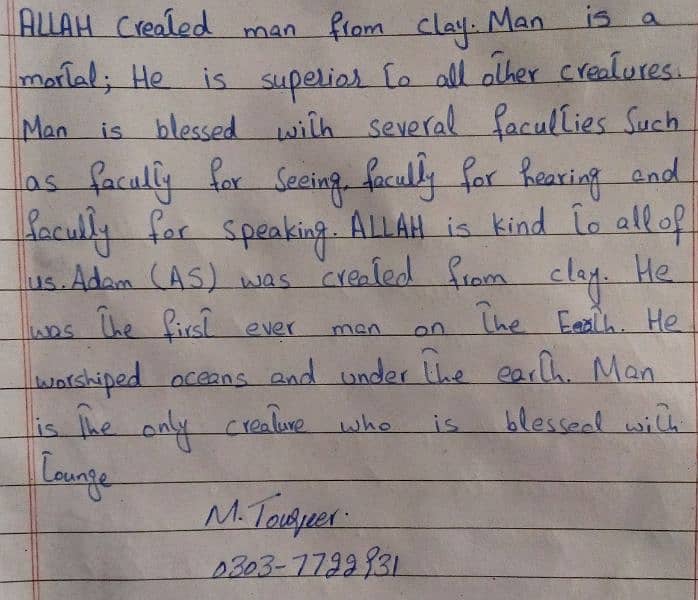 ALLAH Created man from clay. Man is a
mortal; He is superior to all other creatures.
Man is blessed with several faculties Such
as faculty for Seeing, faculty for hearing and
faculty for speaking. ALLAH is kind to all of
us. Adam (AS) was created from clay. He
was the first ever man on the Earth. He
worshiped oceans and under the earth. Man
is the only creature who is blessed with
Tounge
M. Touqeer.
0303-7722931